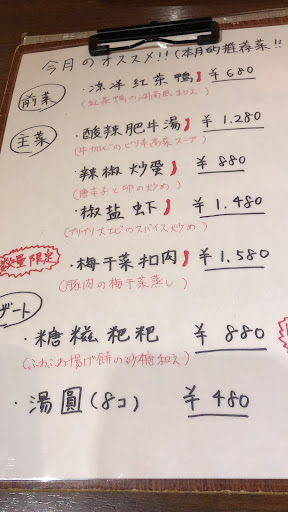 今月のオススメ!!(本月的推荐菜!!
前菜
・凉洋红茶鴨 ¥680
主菜
・酸辣肥牛湯 ¥1.280
・辣椒炒蛋 ¥880
(唐辛子と卵の炒め)
・椒盐虾 ¥1.480
(プリプリエビのスパイス炒め)
数量限定
・梅干菜扣肉 ¥1.580
(豚肉の梅干菜蒸し)
ザート
・糖糍粑粑 ¥880
(ふわふわ揚げ餅の砂糖和え)
・湯圓(8コ) ¥480